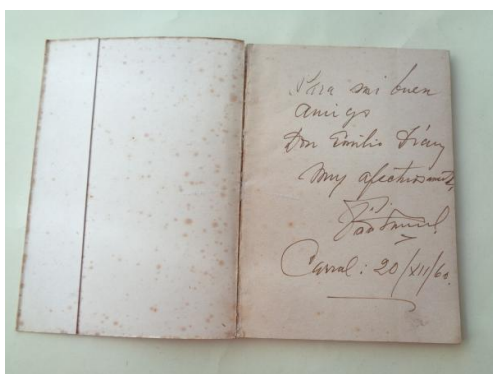 Para mi buen
amigo
Don Emilio Díaz
Muy afectuosamente,
Carral: 20/XII/60.